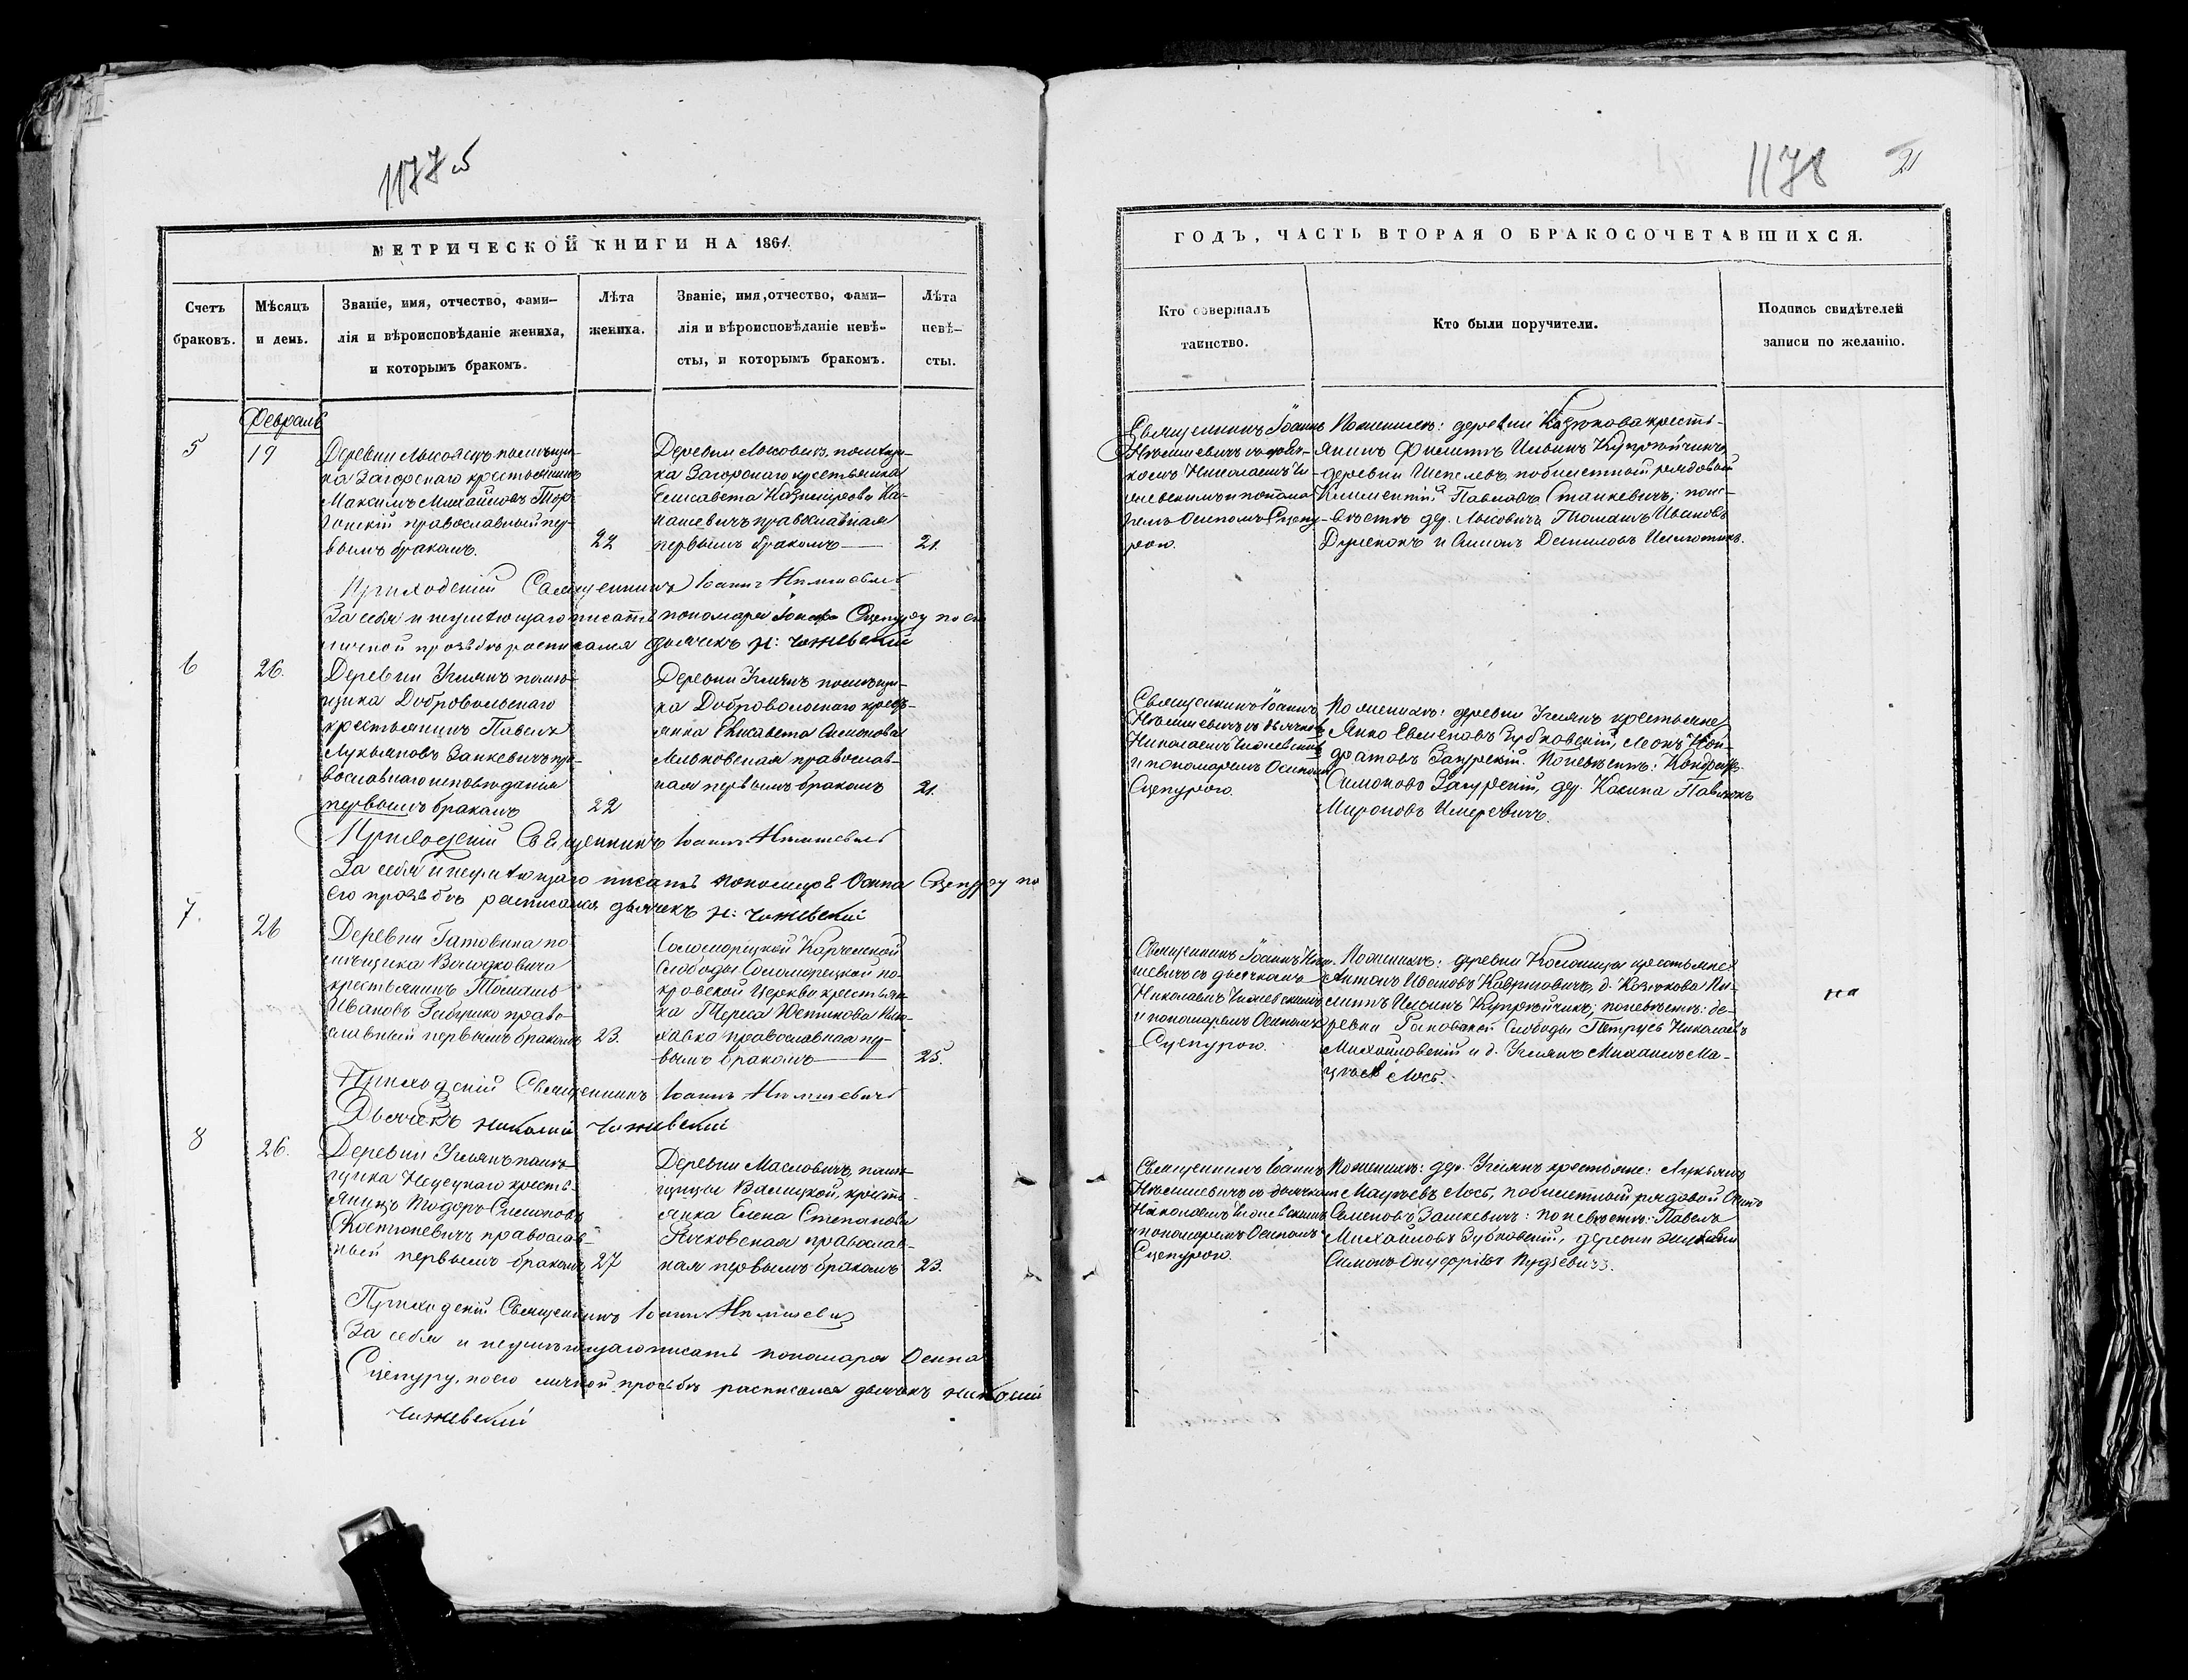 1177 об
МЕТРИЧЕСКОЙ КНИГИ НА 1861.
Счетъ браковъ.
Мѣсяцъ и день.
Званіе, имя, отчество, фами-
лія и вѣроисповѣданіе жениха,
и которымъ бракомъ.
Лѣта
жениха.
Званіе, имя, отчество, фами-
лія и вѣроисповѣданіе невѣ-
сты, и которымъ бракомъ.
Лѣта
невѣ-
сты.
Февраль
5
19
Деревни помѣщи-
ка Загорскаго крестьянинъ
Максимъ Михайловъ
православный пер-
вымъ бракомъ.
22
Деревни помѣщи-
ка Загорскаго крестьянка
Елисавета Казимірова Ка-
нашевичъ православная
первымъ бракомъ
21.
Приходскій Священникъ Іоаннъ
За себя и неумѣющаго писать пономаря Сцепуру по его
личной прозьбѣ росписался дьячекъ Н: Чижевскій
6
26.
Деревни Углянъ помѣ-
щика Добровольскаго
крестьянинъ Павелъ
Лукьяновъ Занкевичъ пра-
вославнаго исповѣданія
первымъ бракомъ
22
Деревни Углянъ помѣщи-
ка Добровольскаго кресть-
янка Елисавета Симонова
православ-
ная первымъ бракомъ
21.
Приходскій Священникъ Іоаннъ
За себя и неумѣющаго писать пономаря Осипа Сцепуру по
его прозьбѣ росписался дьячекъ Н: Чижевскій
7.
26
Деревни Гатовина по-
мѣщика Володковича
крестьянинъ Томашъ
Ивановъ право-
славный первымъ бракомъ
23.
Соломорецкой
Слободы Соломорецкой по-
кровской Церкви крестьян-
ка Тереса
православная пер-
вымъ бракомъ
25.
Приходскій Священникъ Іоаннъ
Дьячекъ Николай Чижевскій
8
26.
Деревни Углянъ помѣ-
щика кресть-
янинъ Тодоръ Симоновъ
Костюкевичъ православ-
ный первымъ бракомъ
27
Деревни Масловичъ помѣ-
щицы кресть-
янка Елена Степанова
Рачковская православ-
ная первымъ бракомъ
23.
Приходскій Священникъ Іоаннъ
За себя и неумѣющаго писать пономаря Осипа
Сцепуру, по его личной просьбѣ росписался дьячекъ Николай
Чижевскій
1178
21
ГОДЪ, ЧАСТЬ ВТОРАЯ О БРАКОСОЧЕТАВШИХСЯ.
Кто совершалъ
таинство.
Кто были поручители.
Подпись свидѣтелей
записи по желанію.
Священникъ Іоаннъ
съ дьяч-
комъ Николаемъ Чи-
жевскимъ и понома-
ремъ Осипомъ Сцепу-
рою.
По женихѣ: деревни Казюкова кресть-
янинъ Филиппъ Ильинъ Купрейчикъ,
деревни Шепелевъ побилетный рядовый
Климентій Павловъ Станкевичъ; по не-
вѣстѣ дер. Томашъ Ивановъ
и Симонъ Даниловъ
Священникъ Іоаннъ
съ дьячкомъ
Николаемъ Чижевскимъ
и пономаремъ Осипомъ
Сцепурою.
По женихѣ: деревни Углянъ крестьяне
Янко Евменовъ Зубковскій, Леонъ Кон-
дратовъ Загурскій. По невѣстѣ: Кондратъ
Симоновъ Загурскій, дер. Касина Павлюкъ
Мироновъ
Священникъ Іоаннъ
съ дьячкомъ
Николаемъ Чижевскимъ
и пономаремъ Осипомъ
Сцепурою.
По женихѣ: деревни крестьяне
Антонъ Ивановъ д. Казюкова Фи-
липпъ Ильинъ Купрейчикъ; по невѣстѣ: де-
ревни Раковской Слободы Петрусь Николаевъ
Михайловскій и д. Углянъ Михаилъ Ма-
цѣевъ Лось.
на
Священникъ Іоаннъ
съ дьячкомъ
Николаемъ Чижевскимъ
и пономаремъ Осипомъ
Сцепурою.
По женихѣ: дер. Углянъ крестьяне: Лукьянъ
Мацѣевъ Лось, побилетный рядовой
Семеновъ Зашкевичъ: по невѣстѣ: Павелъ
Михайловъ Зубковскій, деревни
Симонъ Онуфріевъ